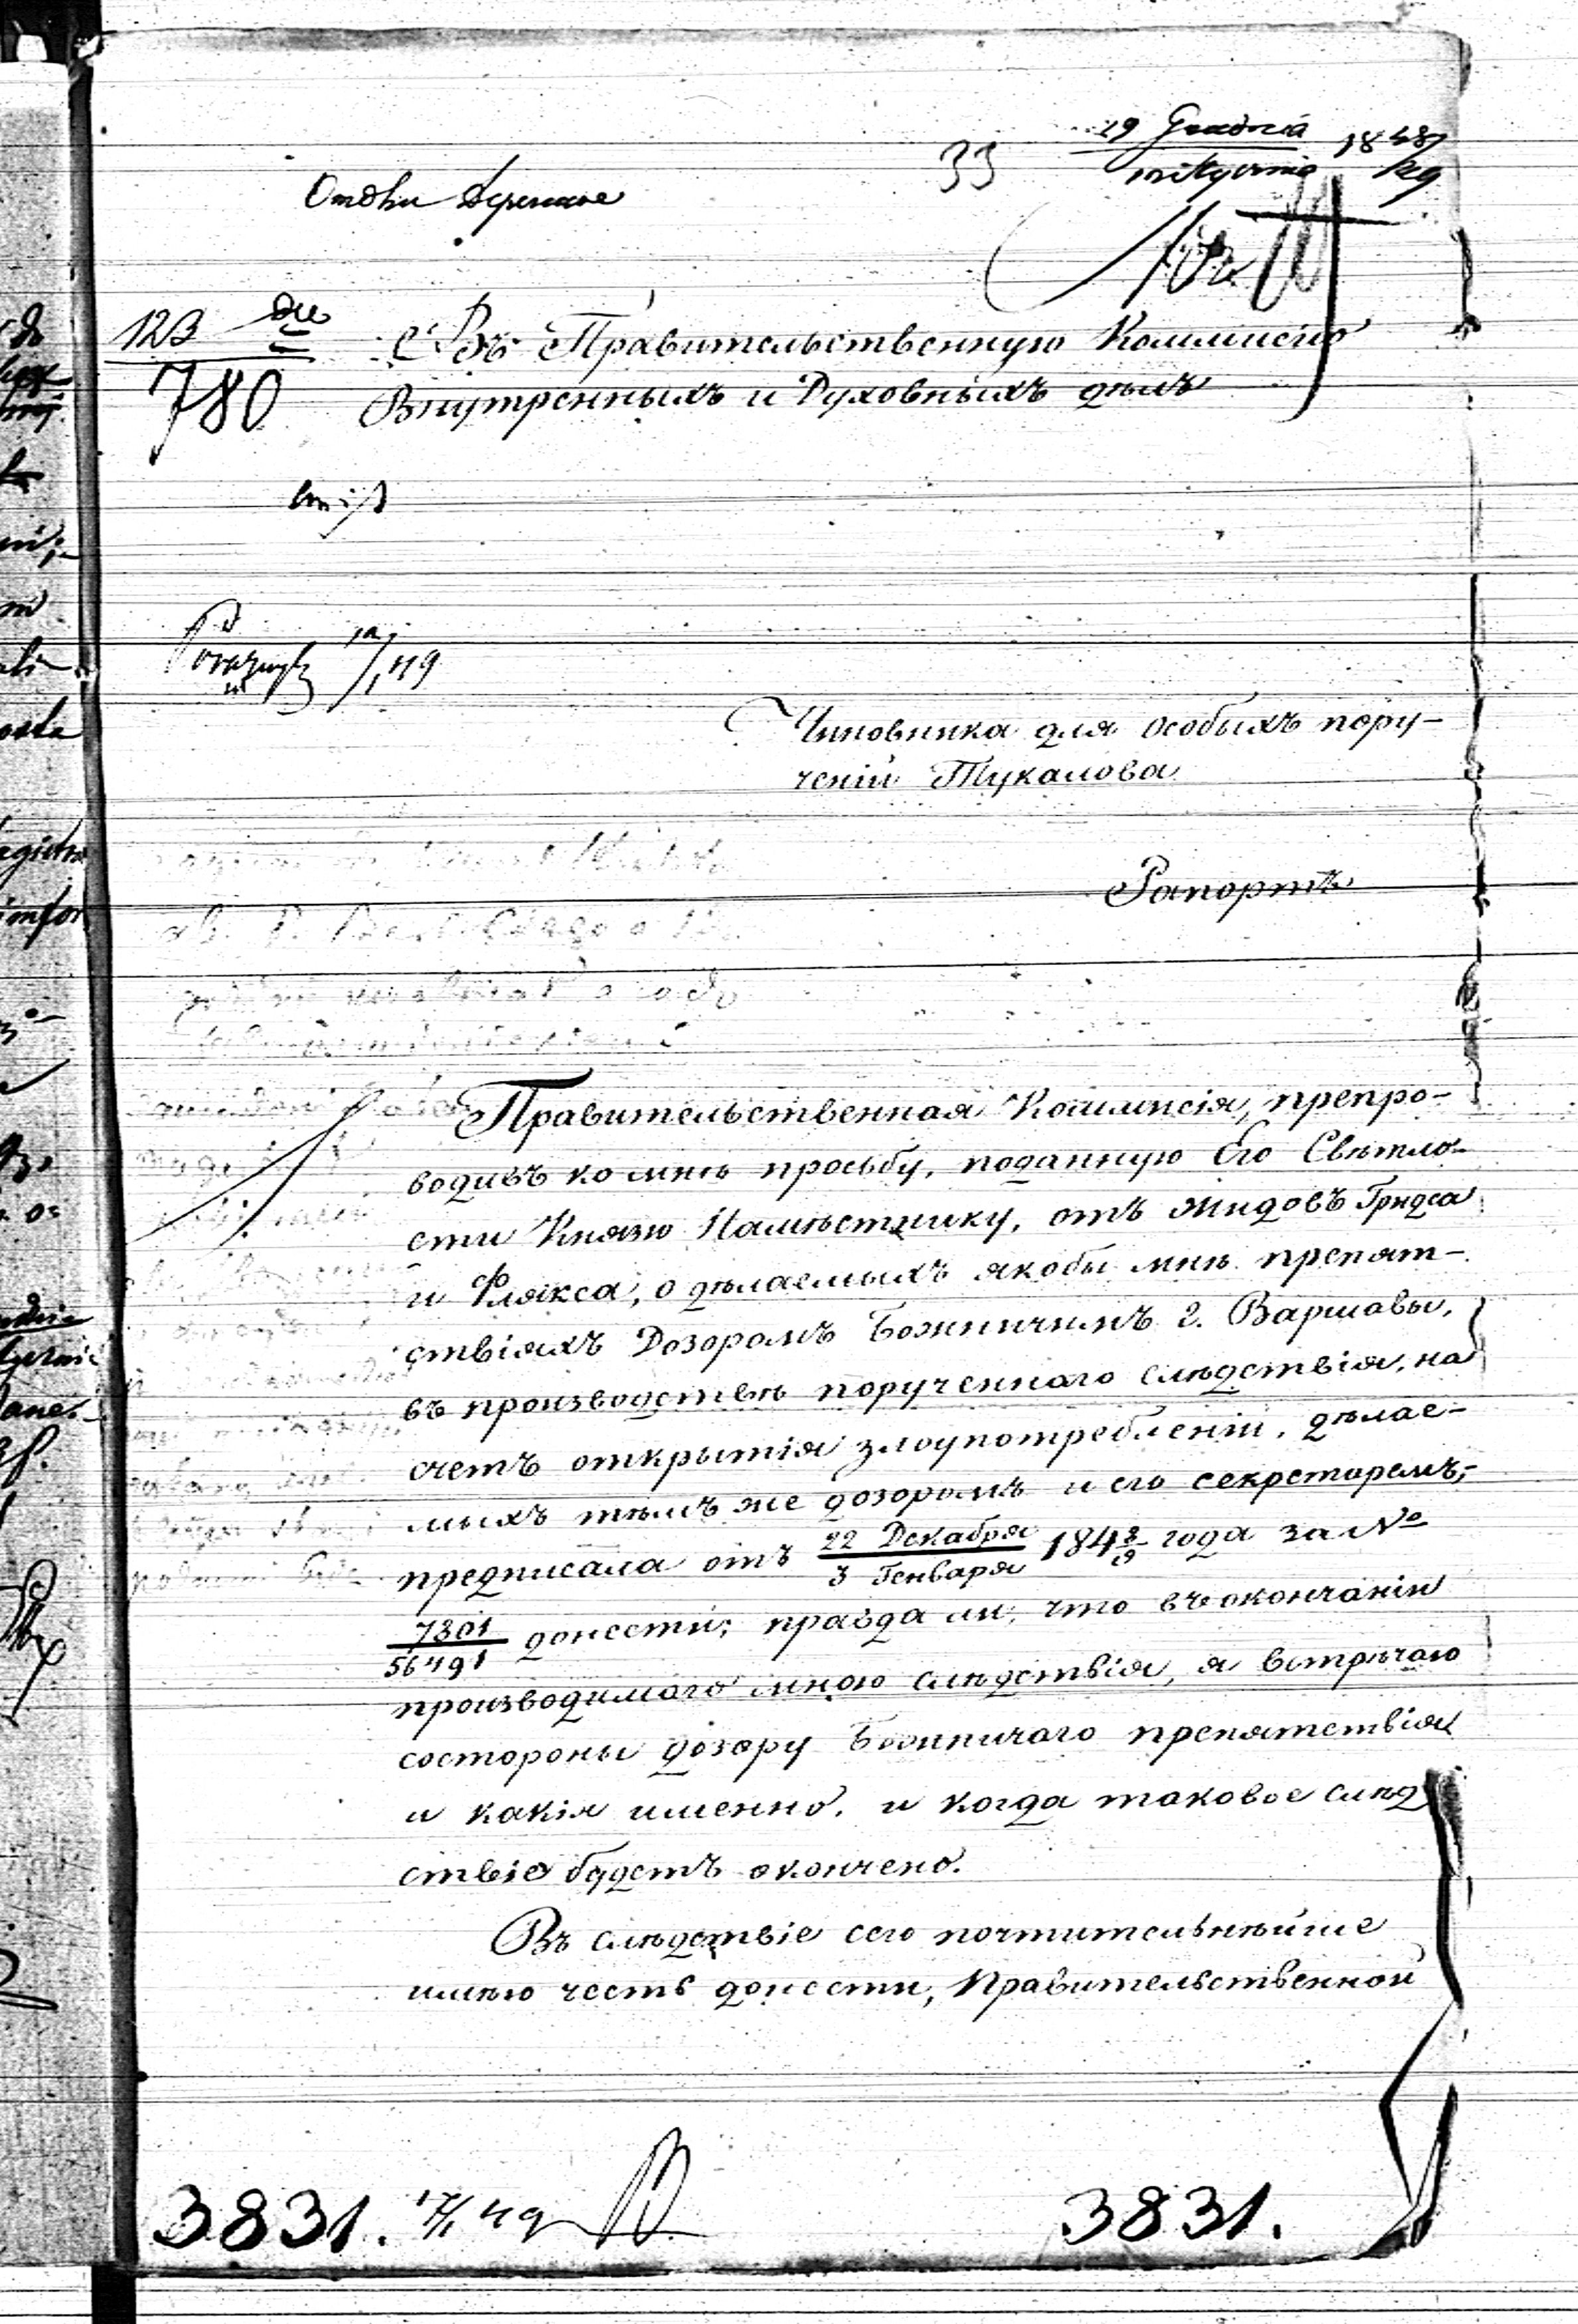 33
29 Grudnia 1848/49
Stycznia
123
780
Въ Правительственную Коммисію
Внутренныхъ и Духовныхъ дѣлъ
Чиновника для особыхъ пору-
ченій Тукалова
Рапортъ
Правительственная Коммисія, препро-
водивъ ко мнѣ просьбу, поданную Его Свѣтло-
сти Князю Намѣстнику, отъ жидовъ Гридса
и Флякса, о дѣлаемыхъ якобы мнѣ препят-
ствіяхъ Дозоромъ Божничимъ г. Варшавы,
въ производствѣ порученнаго слѣдствія, на
счетъ открытія злоупотребленій, дѣлае-
мыхъ тѣмъ же дозоромъ и его секретаремъ,-
предписала отъ 22 Декабря / 3 Генваря 184 8/9 года за №
7301/56491 донести; правда ли, что въ окончаніи
производимаго мною слѣдствія, я встрѣчаю
состороны дозору Божничаго препятствія
и какія именно, и когда таковое слѣд
ствіе будетъ окончено.
Въ слѣдствіе сего почтительнѣйше
имѣю честь донести, Правительственной
3831. 17/1 49
3831.